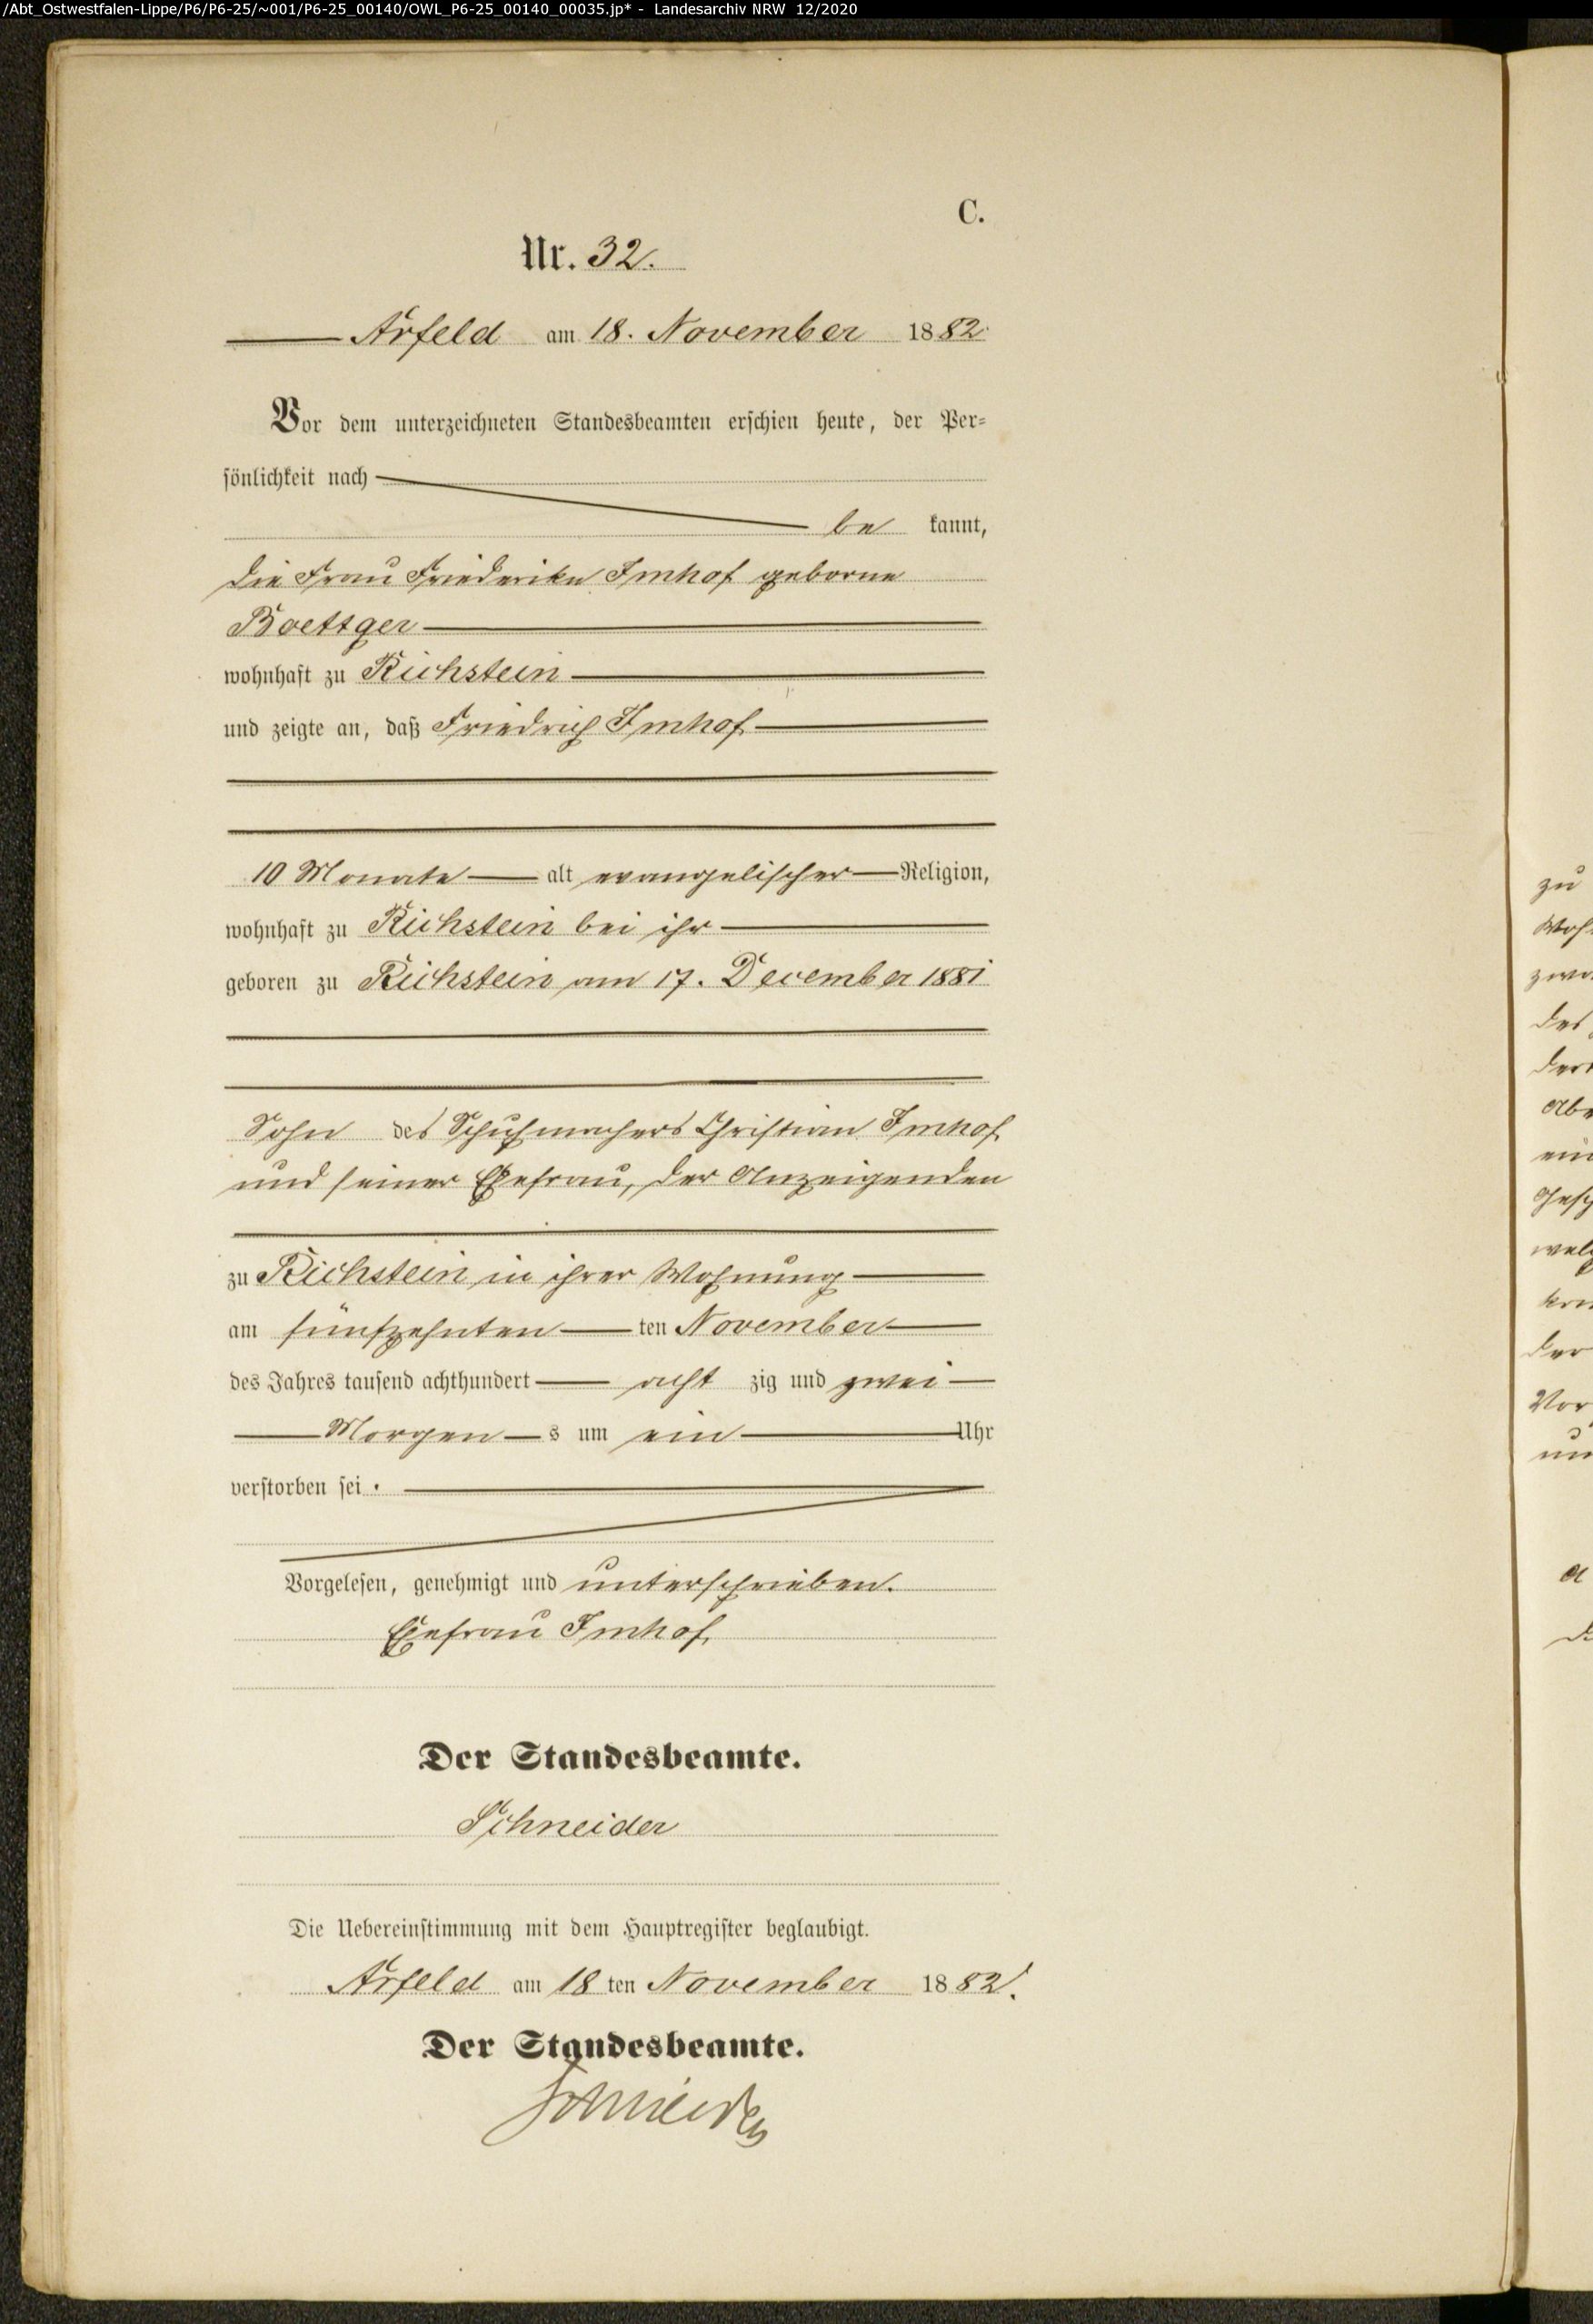 /Abt_Ostwestfalen-Lippe/P6/P6-25/~001/P6-25_00140/OWL_P6-25_00140_00035.jp* - Landesarchiv NRW 12/2020
C.
Nr. 32.
Arfeld am 18. November 1882
Vor dem unterzeichneten Standesbeamten erschien heute, der Per-
sönlichkeit nach
be kannt,
die Frau Friederike Imhof geborne
Boettger
wohnhaft zu Richstein
und zeigte an, daß Friedrich Imhof
10 Monate alt evangelischer Religion,
wohnhaft zu Richstein bei ihr
geboren zu Richstein am 17. December 1881
Sohn des Schuhmachers Christian Imhof
und seiner Ehefrau, der Anzeigenden
zu Richstein in ihrer Wohnung
am fünfzehnten ten November
des Jahres tausend achthundert acht zig und zwei
Morgen s um ein Uhr
verstorben sei.
Vorgelesen, genehmigt und unterschrieben.
Ehefrau Imhof
Der Standesbeamte.
Schneider
Die Uebereinstimmung mit dem Hauptregister beglaubigt.
Arfeld am 18 ten November 1882.
Der Standesbeamte.
Schneider
zu
der